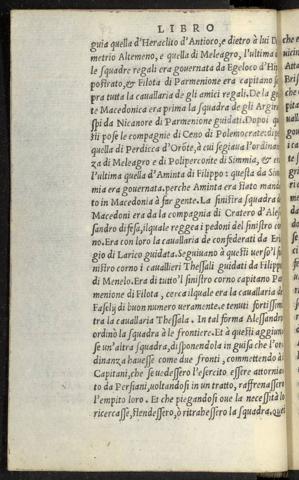 LIBRO
guia quella d'Heraclito d'Antioco, e dietro à lui De
metrio Altemeno, e quella di Meleagro, l'ultima de
le squadre regali era gouernata da Egeloco d'Hip
postrato, & Filota di Parmenione era capitano so
pra tutta la cauallaria de gli amici regali. De la ge
te Macedonica era prima la squadra de gli Argira
spi da Nicanore di Parmenione guidati. Dopoi que
sti pose le compagnie di Ceno di Polemocrate: dipoi
quella di Perdicca d'Orōte, à cui seguiua l'ordinan
za di Meleagro e di Poliperconte di Simmia, & era
l'ultima quella d'Aminta di Filippo: questa da Sim
mia era gouernata. perche Aminta era stato manda
to in Macedonia à far gente. La sinistra squadra de
Macedoni era da la compagnia di Cratero d'Ales
sandro difesa, ilquale reggea i pedoni del sinistro cor
no. Era con loro la cauallaria de confederati da Eri
gio di Larico guidata. Seguiuano à questi uerso'l si
nistro corno i cauallieri Thessali guidati da Filippo
di Menelo. Era di tutto'l sinistro corno capitano Par
menione di Filota, cerca ilquale era la cauallaria de
Fasely di buon numero ueramente, e tenuti fortissima
tra la cauallaria Thessala. In tal forma Alessandro
ordinò la squadra à le frontiere. Et à questi aggiun
se un'altra squadra, disponendola in guisa che l'or
dinanza hauesse come due fronti, commettendo à
Capitani, che se uedessero l'esercito essere attornia
to da Persiani, uoltandosi in un tratto, raffrenassero
l'empito loro. Et che piegandosi oue la necessità lo
ricercasse, stendessero, ò ritrahessero la squadra. que